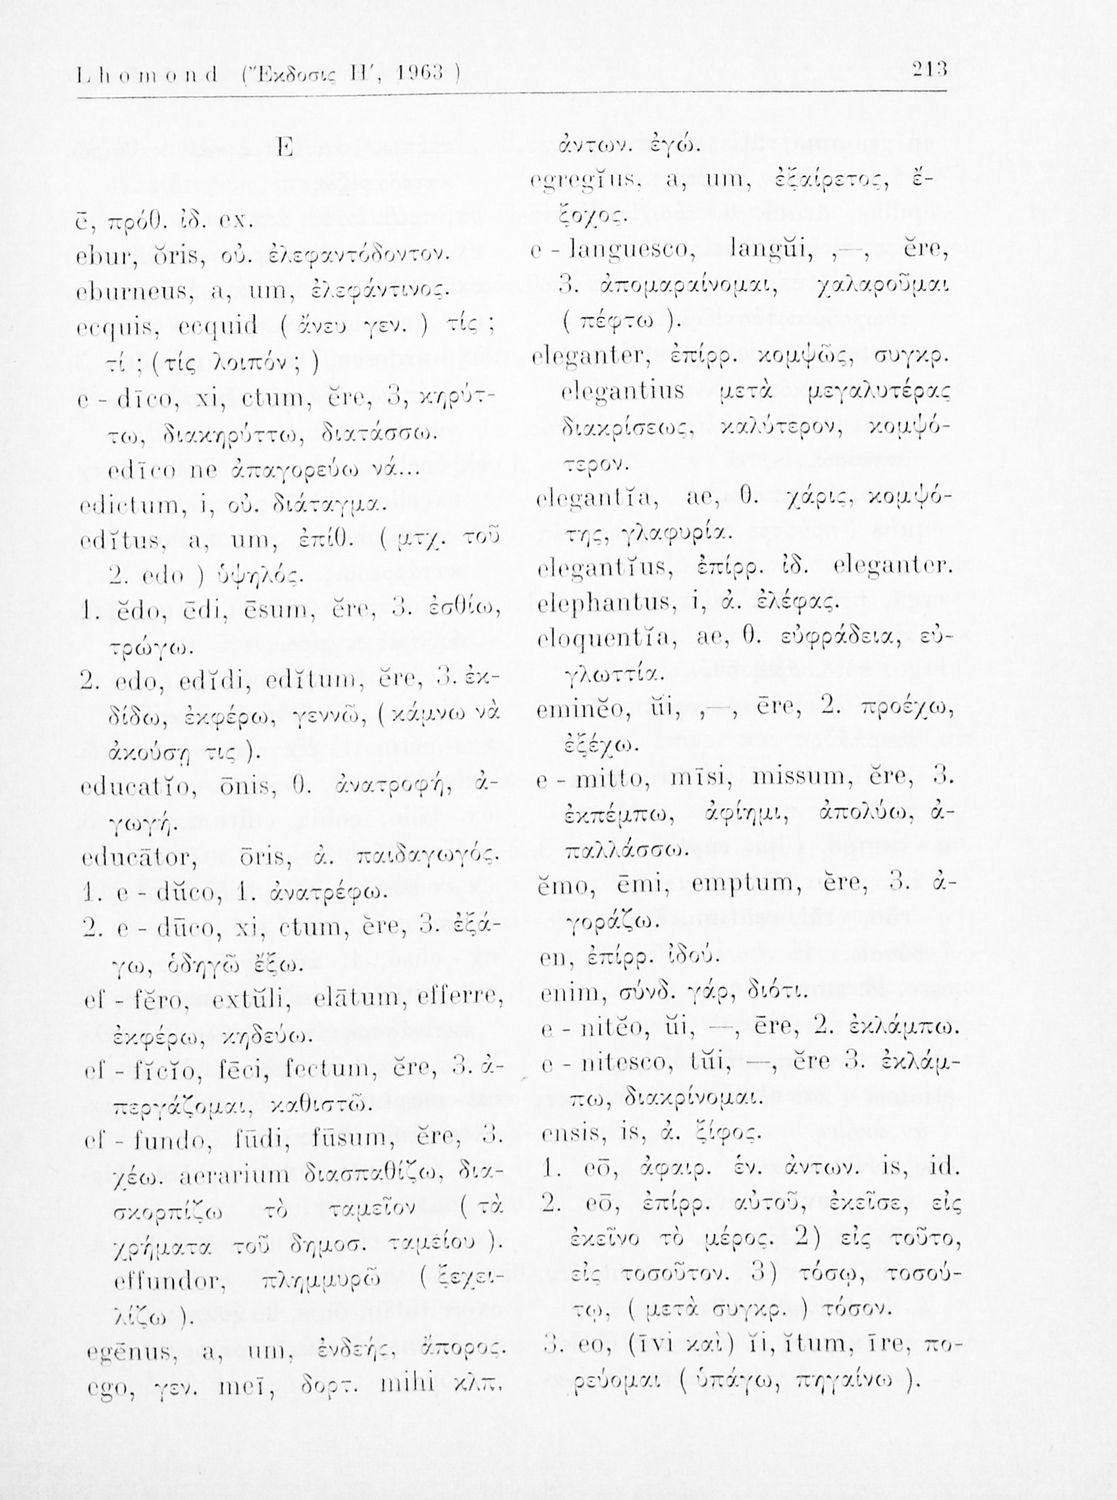 Lhomond (Ἔκδοσις Η΄, 1963 )
213
E
ē, πρόθ. ἰδ. ex.
ebur, ŏris, οὐ. ἐλεφαντόδοντον.
eburneus, a, um, ἐλεφάντινος.
ecquis, ecquid ( ἄνευ γεν. ) τίς ;
τί ; (τίς λοιπόν ; )
e - dīco, xi, ctum, ĕre, 3, κηρύτ-
τω, διακηρύττω, διατάσσω.
edīco ne ἀπαγορεύω νά...
edictum, i, οὐ. διάταγμα.
edĭtus, a, um, ἐπίθ. ( μτχ. τοῦ
2. edo ) ὑψηλός.
1. ĕdo, ēdi, ēsum, ĕre, 3. ἐσθίω,
τρώγω.
2. edo, edĭdi, edĭtum, ĕre, 3. ἐκ-
δίδω, ἐκφέρω, γεννῶ, ( κάμνω νὰ
ἀκούσῃ τις ).
educatĭo, ōnis, θ. ἀνατροφή, ἀ-
γωγή.
educātor, ōris, ἀ. παιδαγωγός.
1. e - dŭco, 1. ἀνατρέφω.
2. e - dūco, xi, ctum, ĕre, 3. ἐξά-
γω, ὁδηγῶ ἔξω.
ef - fĕro, extŭli, elātum, efferre,
ἐκφέρω, κηδεύω.
ef - fĭcĭo, fēci, fectum, ĕre, 3. ἀ-
περγάζομαι, καθιστῶ.
ef - fundo, fūdi, fūsum, ĕre, 3.
χέω. aerarium διασπαθίζω, δια-
σκορπίζω τὸ ταμεῖον ( τὰ
χρήματα τοῦ δημοσ. ταμείου ).
effundor, πλημμυρῶ ( ξεχει-
λίζω ).
egēnus, a, um, ἐνδεής, ἄπορος.
ego, γεν. meī, δοτ. mihi κλπ.
ἀντων. ἐγώ.
egregĭus, a, um, ἐξαίρετος, ἔ-
ξοχος.
e - languesco, langŭi, ,—, ĕre,
3. ἀπομαραίνομαι, χαλαροῦμαι
( πέφτω ).
eleganter, ἐπίρρ. κομψῶς, συγκρ.
elegantius μετὰ μεγαλυτέρας
διακρίσεως, καλύτερον, κομψό-
τερον.
elegantĭa, ae, θ. χάρις, κομψό-
της, γλαφυρία.
elegantĭus, ἐπίρρ. ἰδ. eleganter.
elephantus, i, ἀ. ἐλέφας.
eloquentĭa, ae, θ. εὐφράδεια, εὐ-
γλωττία.
eminĕo, ŭi, ,—, ēre, 2. προέχω,
ἐξέχω.
e - mitto, mīsi, missum, ĕre, 3.
ἐκπέμπω, ἀφίημι, ἀπολύω, ἀ-
παλλάσσω.
ĕmo, ēmi, emptum, ĕre, 3. ἀ-
γοράζω.
en, ἐπίρρ. ἰδού.
enim, σύνδ. γάρ, διότι.
e - nitĕo, ŭi, —, ēre, 2. ἐκλάμπω.
e - nitesco, tŭi, —, ĕre 3. ἐκλάμ-
πω, διακρίνομαι.
ensis, is, ἀ. ξίφος.
1. eō, ἀφαιρ. ἑν. ἀντων. is, id.
2. eō, ἐπίρρ. αὐτοῦ, ἐκεῖσε, εἰς
ἐκεῖνο τὸ μέρος. 2) εἰς τοῦτο,
εἰς τοσοῦτον. 3) τόσῳ, τοσού-
τῳ, ( μετὰ συγκρ. ) τόσον.
3. eo, (īvi καὶ) ĭi, ĭtum, īre, πο-
ρεύομαι ( ὑπάγω, πηγαίνω ).